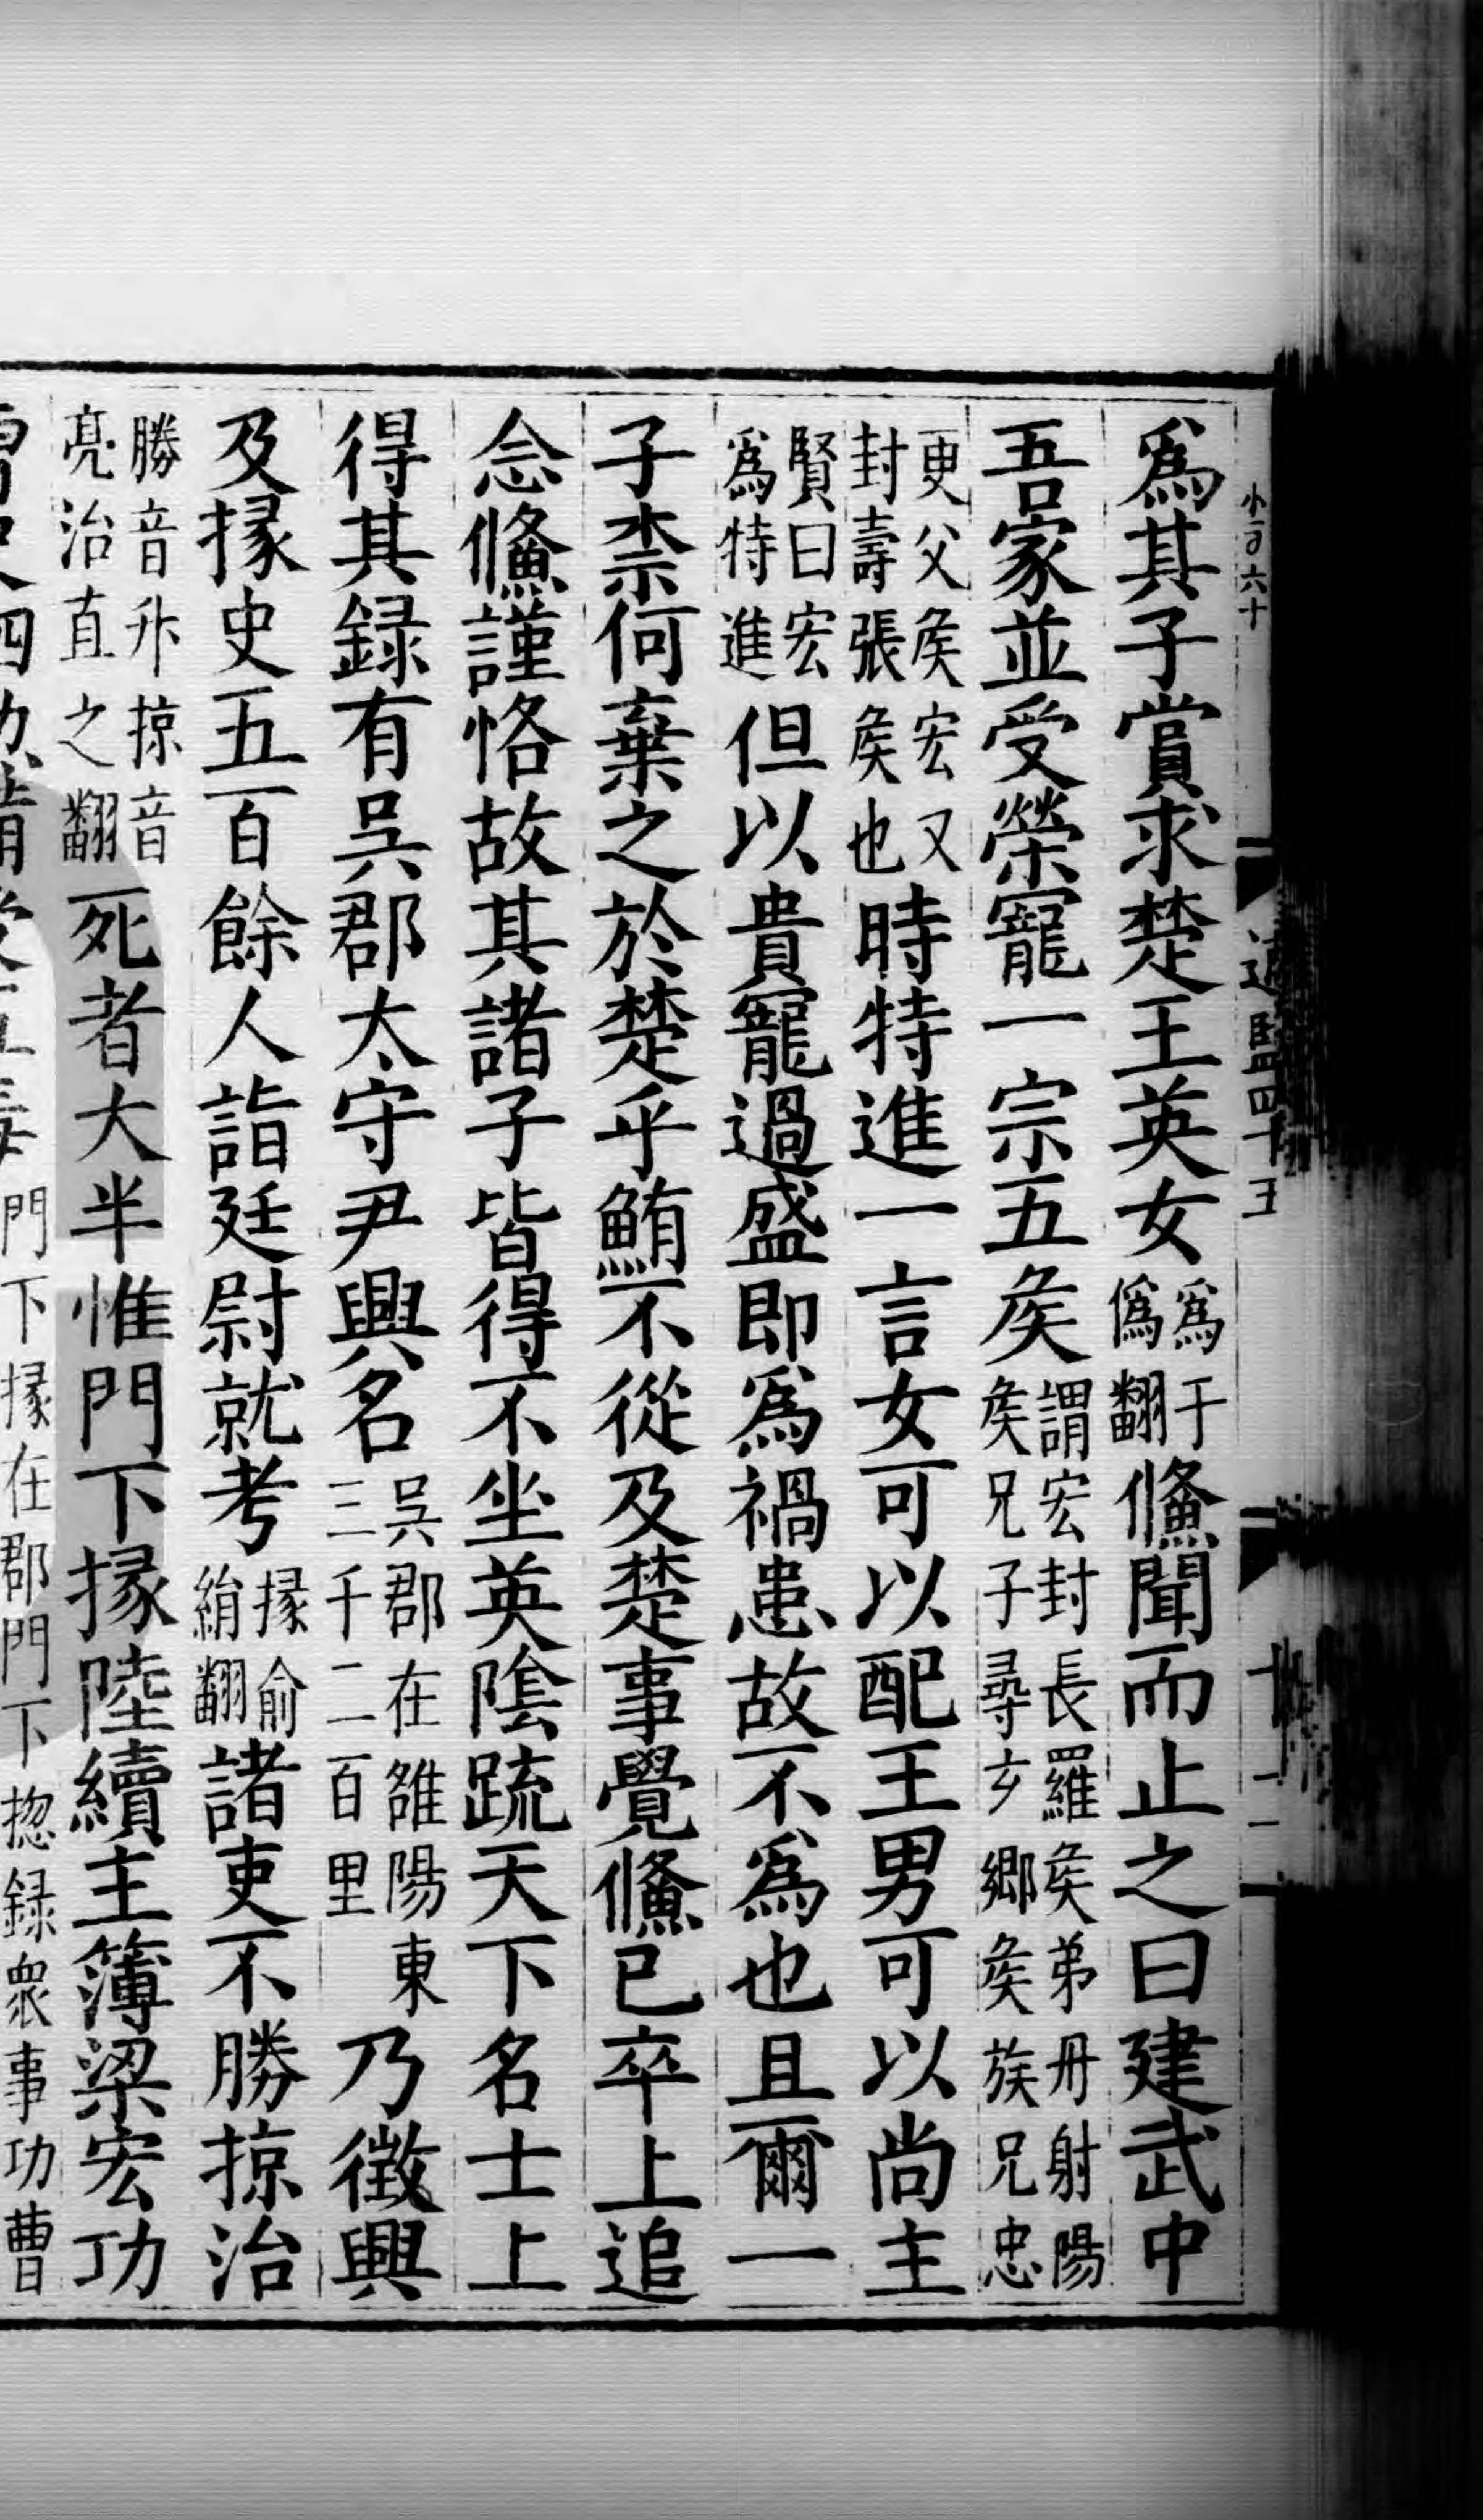 小一百六十
通鑑四十五
十二
爲其子賞求楚王英女爲于僞翻鯈聞而止之曰建武中
吾家並受榮寵一宗五矦謂宏封長羅矦弟丹射陽矦兄子尋玄鄉矦族兄忠
更父矦宏又封壽張矦也時特進一言女可以配王男可以尚主
賢曰宏爲特進但以貴寵過盛即爲禍患故不爲也且爾一
子柰何棄之於楚乎鮪不從及楚事覺鯈已卒上追
念鯈謹恪故其諸子皆得不坐英隂疏天下名士上
得其録有吳郡太守尹興名吳郡在雒陽東三千二百里乃徴興
及掾史五百餘人詣廷尉就考掾俞絹翻諸吏不勝掠治
勝音升掠音亮治直之翻死者大半惟門下掾陸續主簿梁宏功
門下掾在郡門下揔録衆事功曹